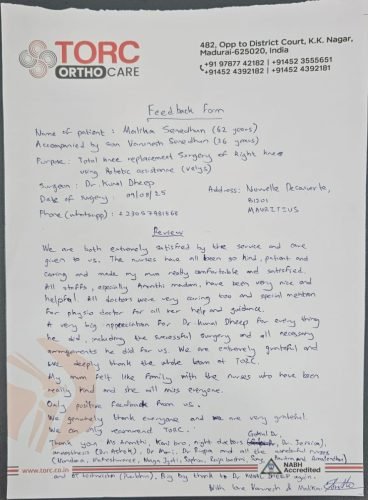 TORC
ORTHO CARE
482, Opp to District Court, K.K. Nagar,
Madurai-625020, India
+91 97877 42182 | +91452 3555651
+91452 4392182 | +91452 4392181
Feedback form
Name of patient : Malika Sewdhun (62 years)
Accompanied by son Vanunsh Sewdhun (36 years)
Purpose : Total knee replacement Surgery of Right knee
using Robotic assistance (velys)
Surgeon : Dr. Kunal Dheep
Address : Nouvelle Decouverte,
Date of Surgery : 09/08/25
81301
Phone (whatsapp) :
MAURITIUS
Review
We are both extremely satisfied by the service and care
given to us. The nurses have all been so kind, patient and
caring and made my mum really comfortable and satisfied.
All staffs, especially Arunthi madam, have been very nice and
helpful. All doctors were very caring too and special mention
for physio doctor for all her help and guidance.
A very big appreciation for Dr Kunal Dheep for every thing
he did, including the successful surgery and all necessary
arrangements he did for us. We are extremely grateful and
very deeply thank the whole team of TORC.
My mum felt like family with the nurses who have been
really kind and she will miss everyone.
Only positive feedback from us.
We genuinely thank everyone and we are very grateful.
We can only recommend TORC.
Thank you Ms Arunthi, Kavi bro, night doctors
anaesthesia (Dr Ashok), Dr Mari, Dr Rupa and all the wonderful nurses
(Vandana, Maheshwaree, Naga Jyoti,
and ot technician Big big thank to Dr KUNAL DHEEP again.
With love Vanunsh & Malika
www.torc.co.in
NABH
Accredited